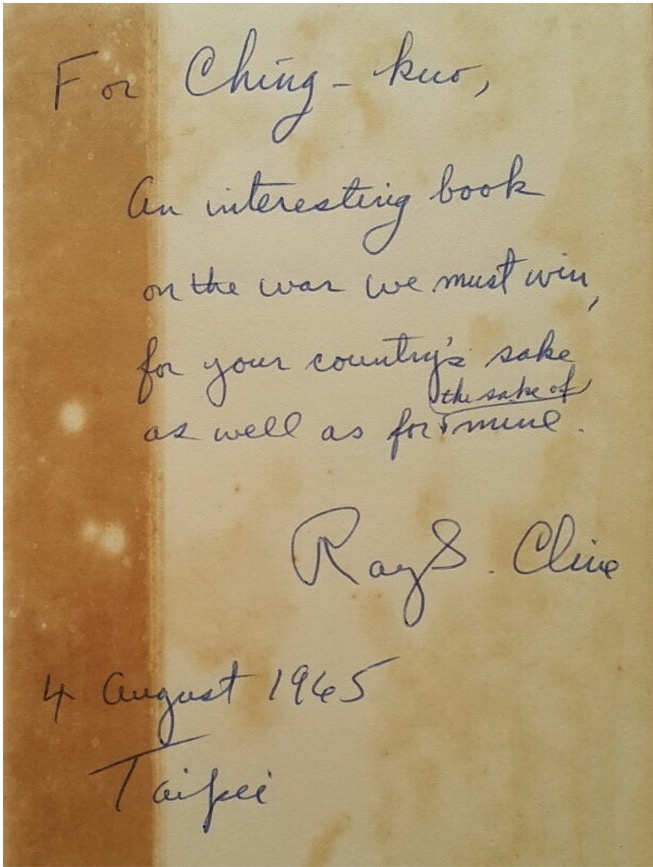 For Ching-kuo,
An interesting book
on the war we must win,
for your country's sake
the sake of
as well as for mine.
Ray S. Cline
4 August 1965
Taipei